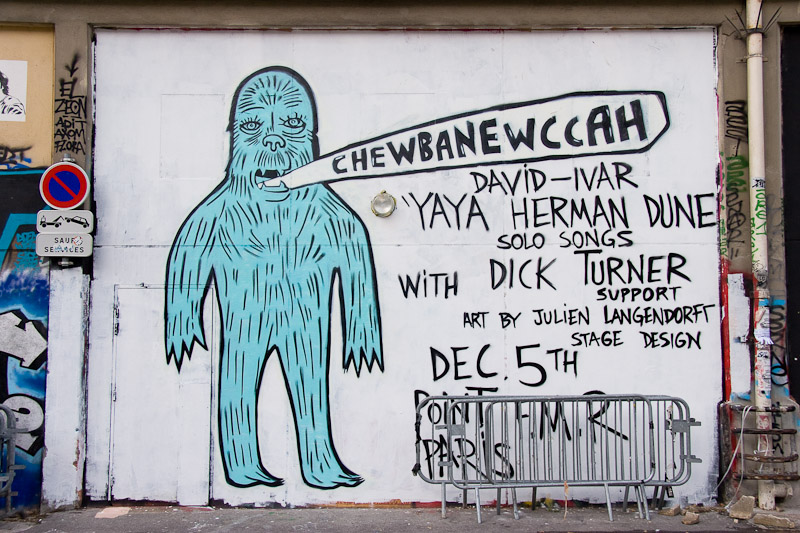 EL
ZEON
CHEWBANEWCCAH
DAVID-IVAR
'YAYA HERMAN DUNE
SOLO SONGS
WITH DICK TURNER
SUPPORT
ART BY JULIEN LANGENDORFF
STAGE DESIGN
DEC. 5TH
POINT F.M.R.
PARIS
SAUF